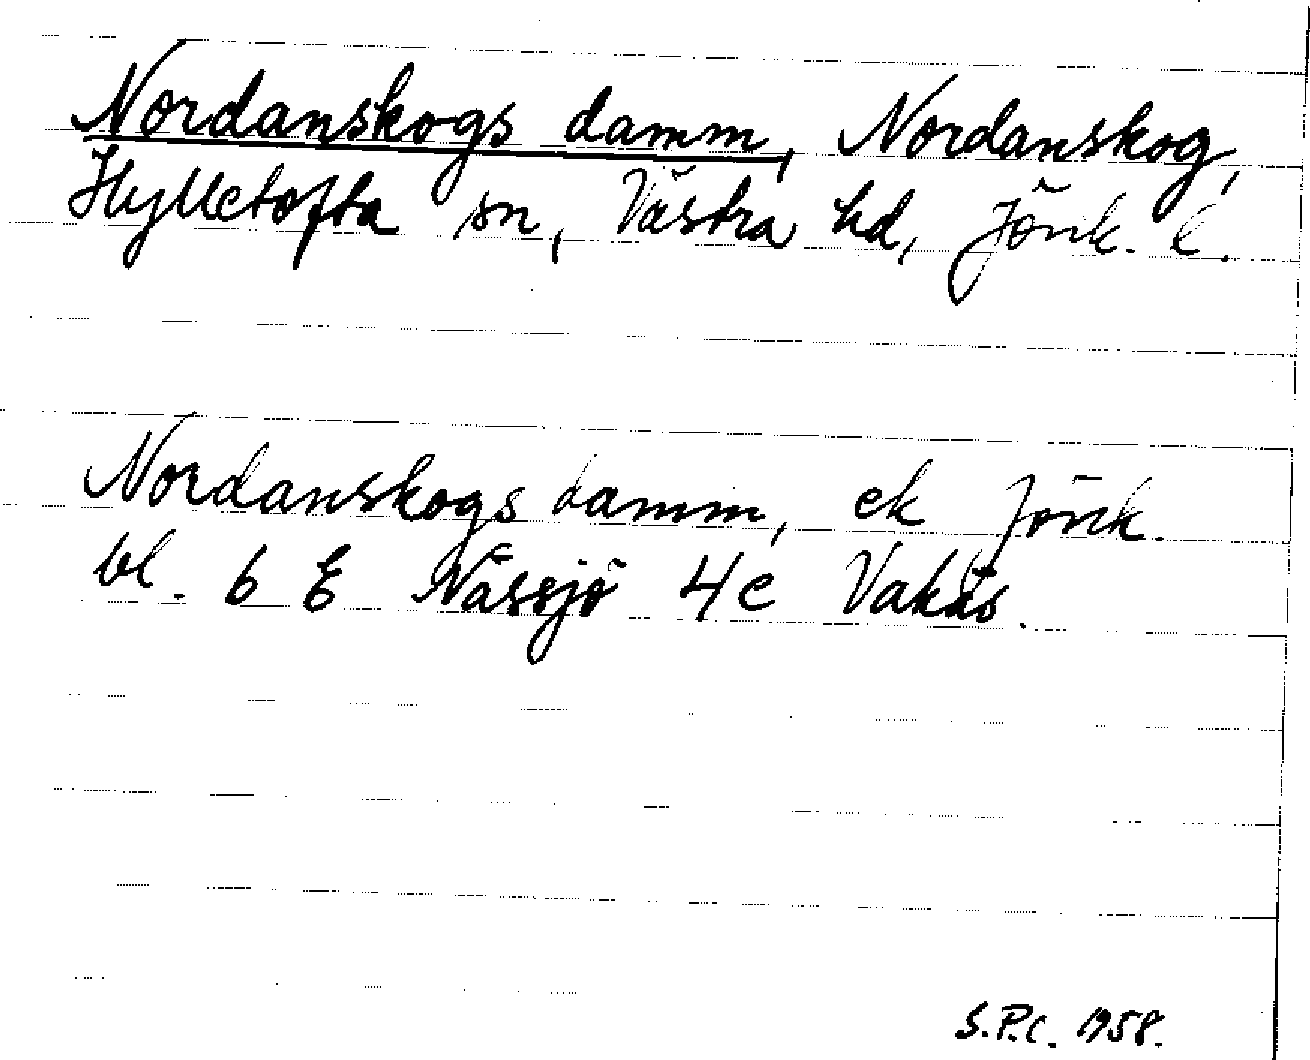 Nordanskogs damm, Nordanskog,
Hylletofta sn, Västra hd, Jönk. l.
Nordanskogs damm, ek Jönk.
bl. 6 E Nässjö 4 e Vakås.
S.P.C. 1958.